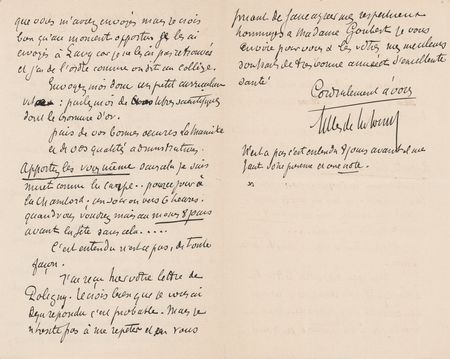 que vous m'avez envoyés mais je crois
bien qu'au moment opportun je les ai
envoyés à et je ne les ai pas retrouvés
et j'ai de l'ordre comme on dit au collège.
Envoyez moi donc un petit curriculum
vitae : parlez moi de vos titres scientifiques
dont le bromure d'or.
puis de vos bonnes œuvres la
et de vos qualités administratives.
Apportez les vous même sans cela je suis
muet comme la carpe .. pour ce jour à
la Chambord, un soir on vers 6 heures.
quand vous voudrez mais au moins 8 jours
avant la fête sans cela .....
C'est entendu n'est ce pas, de toute
façon.
J'ai reçu hier votre lettre de
Poligny. Je crois bien que je vous ai
déjà répondu c'est probable. Mais je
n'hésite pas à me répéter et en vous
priant de mes respectueux
hommages à Madame Goubert je vous
envoie pour vous & les vôtres mes meilleurs
souhaits de très bonne année et d'excellente
santé
Cordialement à vous
N'est ce pas c'est entendu 8 jours avant il me
faut votre personne et une note.